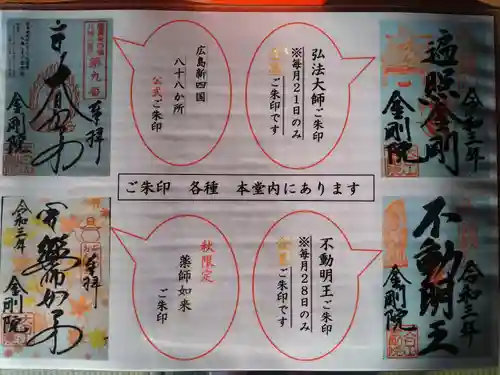 広島新四国
八十八か所
公式ご朱印
弘法大師ご朱印
※毎月21日のみ
ご朱印です
ご朱印 各種 本堂内にあります
秋限定
薬師如来
ご朱印
不動明王ご朱印
※毎月28日のみ
ご朱印です
第九番
奉拝
金剛院
令和三年
遍照金剛
金剛院
令和三年
奉拝
金剛院
令和三年
不動明王
金剛院